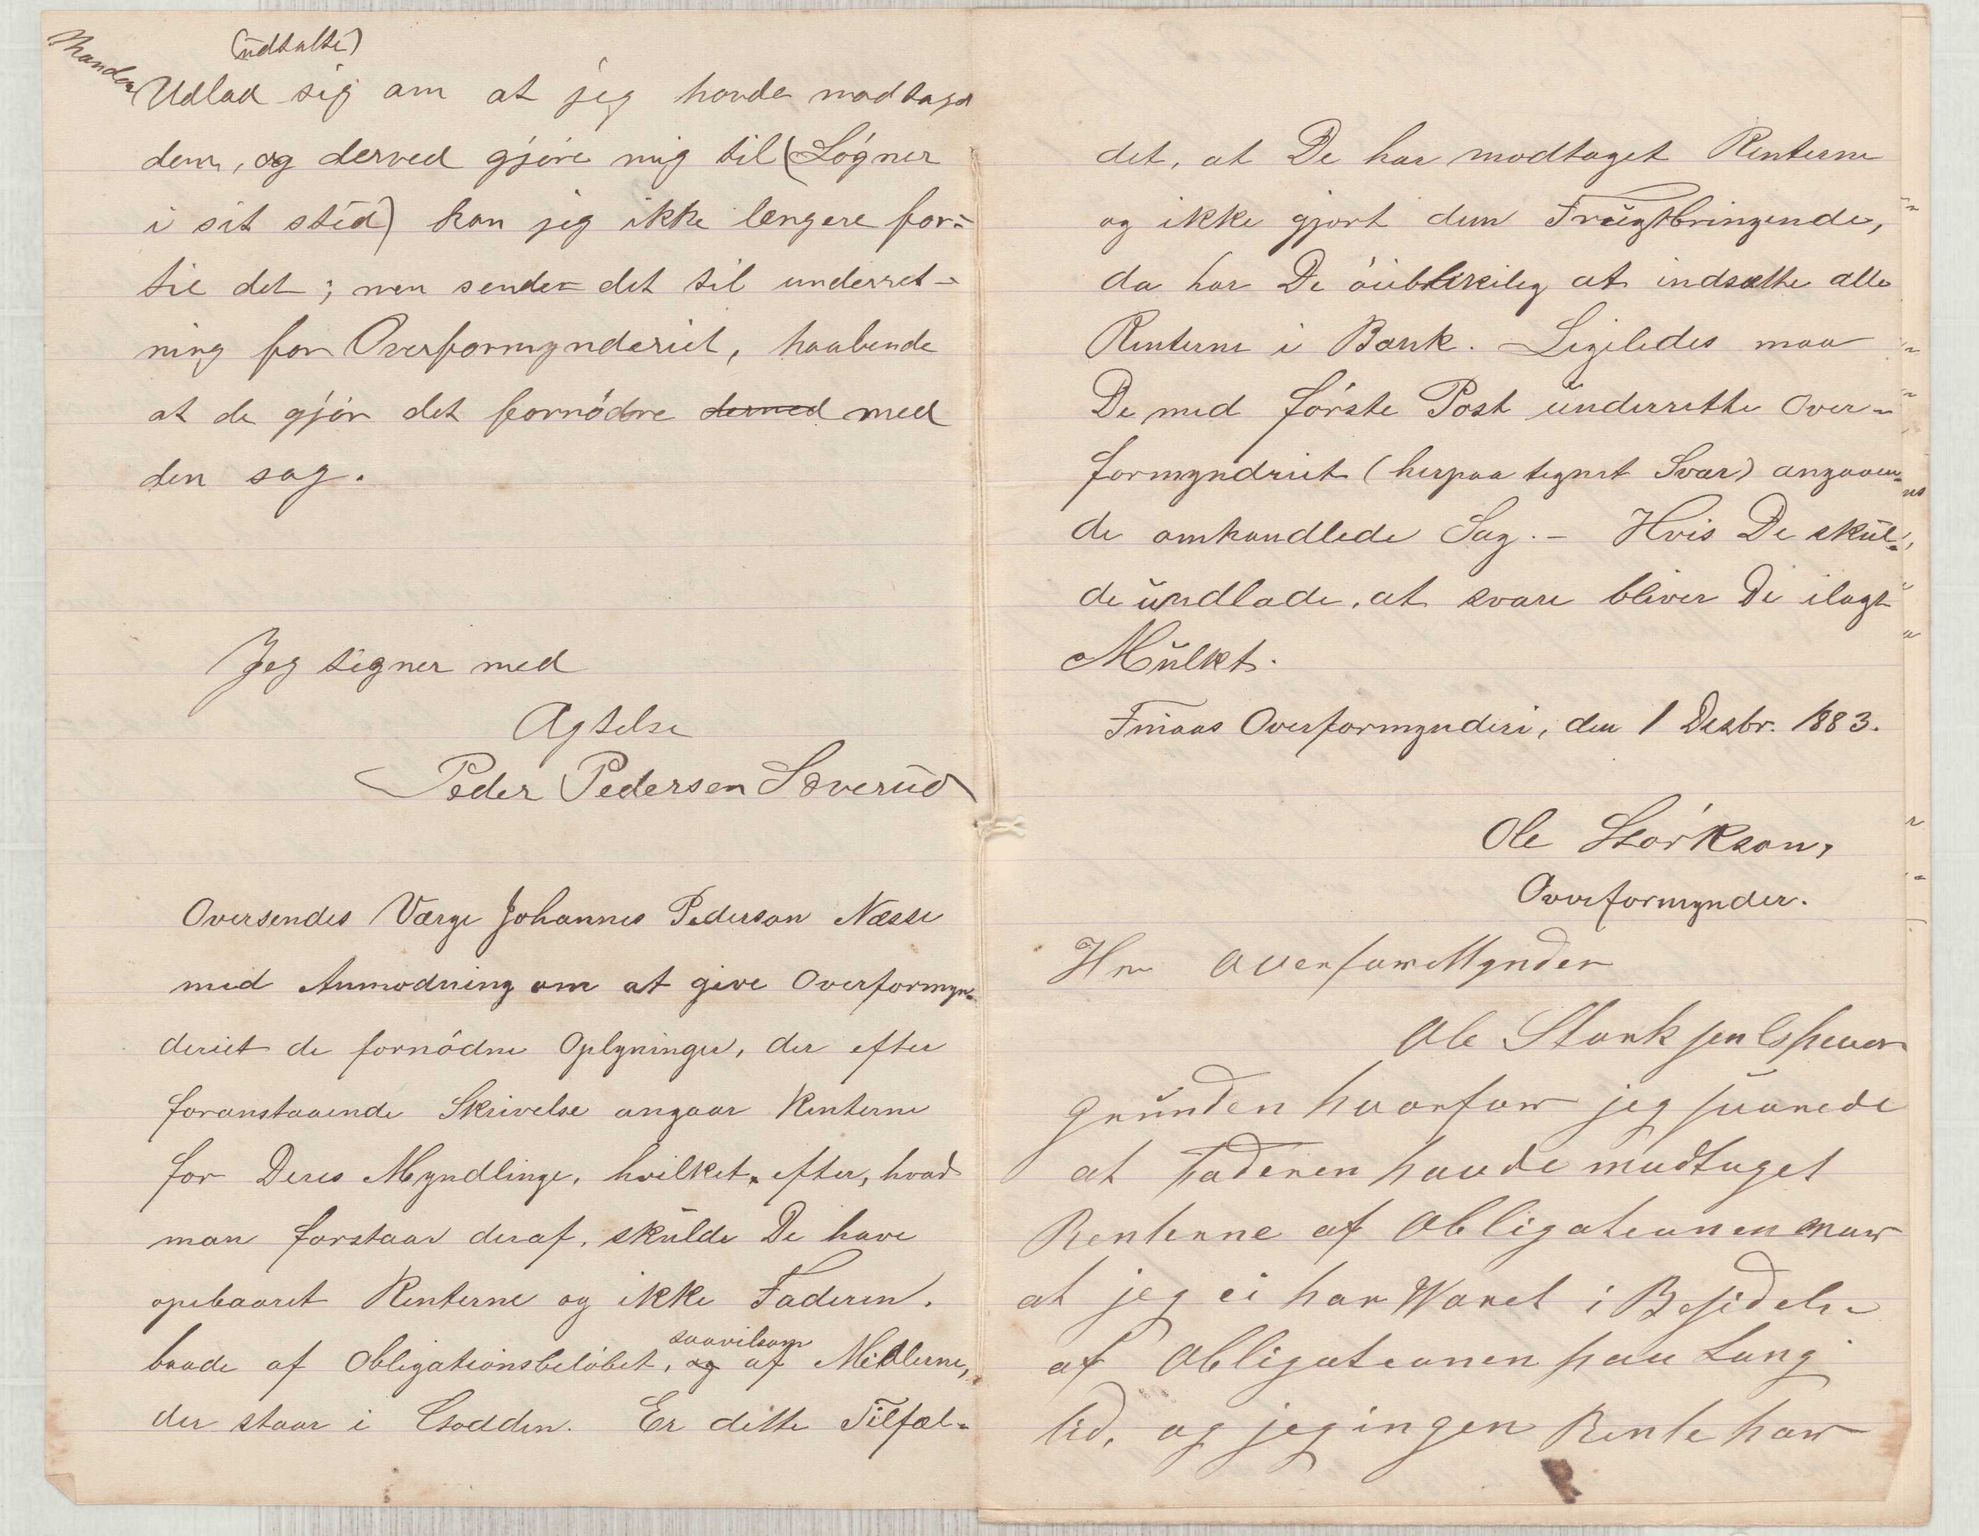 (udtalte)
Manden
Udlod sig om at jeg havde modtaget
dem, og derved gjøre mig til (Løgner
i sit sted) kan jeg ikke længere for-
tie det; men sender det til underret-
ning for Overformynderiet, haabende
at de gjør det fornødne derned med
den sag.
Jeg tegner med
Agtelse
Peder Pedersen Sæverud
Oversendes Værge Johannes Pederson Næsse
med Anmodning om at give Overformyn-
deriet de fornødne Oplyninger, der efter
foranstaaende Skrivelse angaar Renterne
for Deres Myndlinge, hvilket, efter, hvad
man forstaar deraf, skulde De have
opebaaret Renterne og ikke Faderen.
saavelsom
baade af Obligationsbeløbet, og af Midlerne,
der staar i Godden. Er dette Tilfæl-
det, at De har modtaget Renterne
og ikke gjort dem Frugtbringende,
da har De at indsætte alle
Renterne i Bank. Ligeledes maa
De med første Post underrette Over-
formyndriet (herpaa tegnet Svar) angaaen-
de omhandlede Sag. – Hvis De skul-
de undlade, at svare bliver De ilagt
Mulkt.
Finaas Overformynderi, den 1 Dezbr. 1883.
Ole Størkson,
Overformynder.
Hr Overformynder
Ole Storksen
grunden hvorfor jeg svarede
at Faderen havde modtaget
Renterne af Obligationen var
at jeg ei har Været i Besidelse
af Obligationen paa Lang
tid, og jeg ingen Rente har